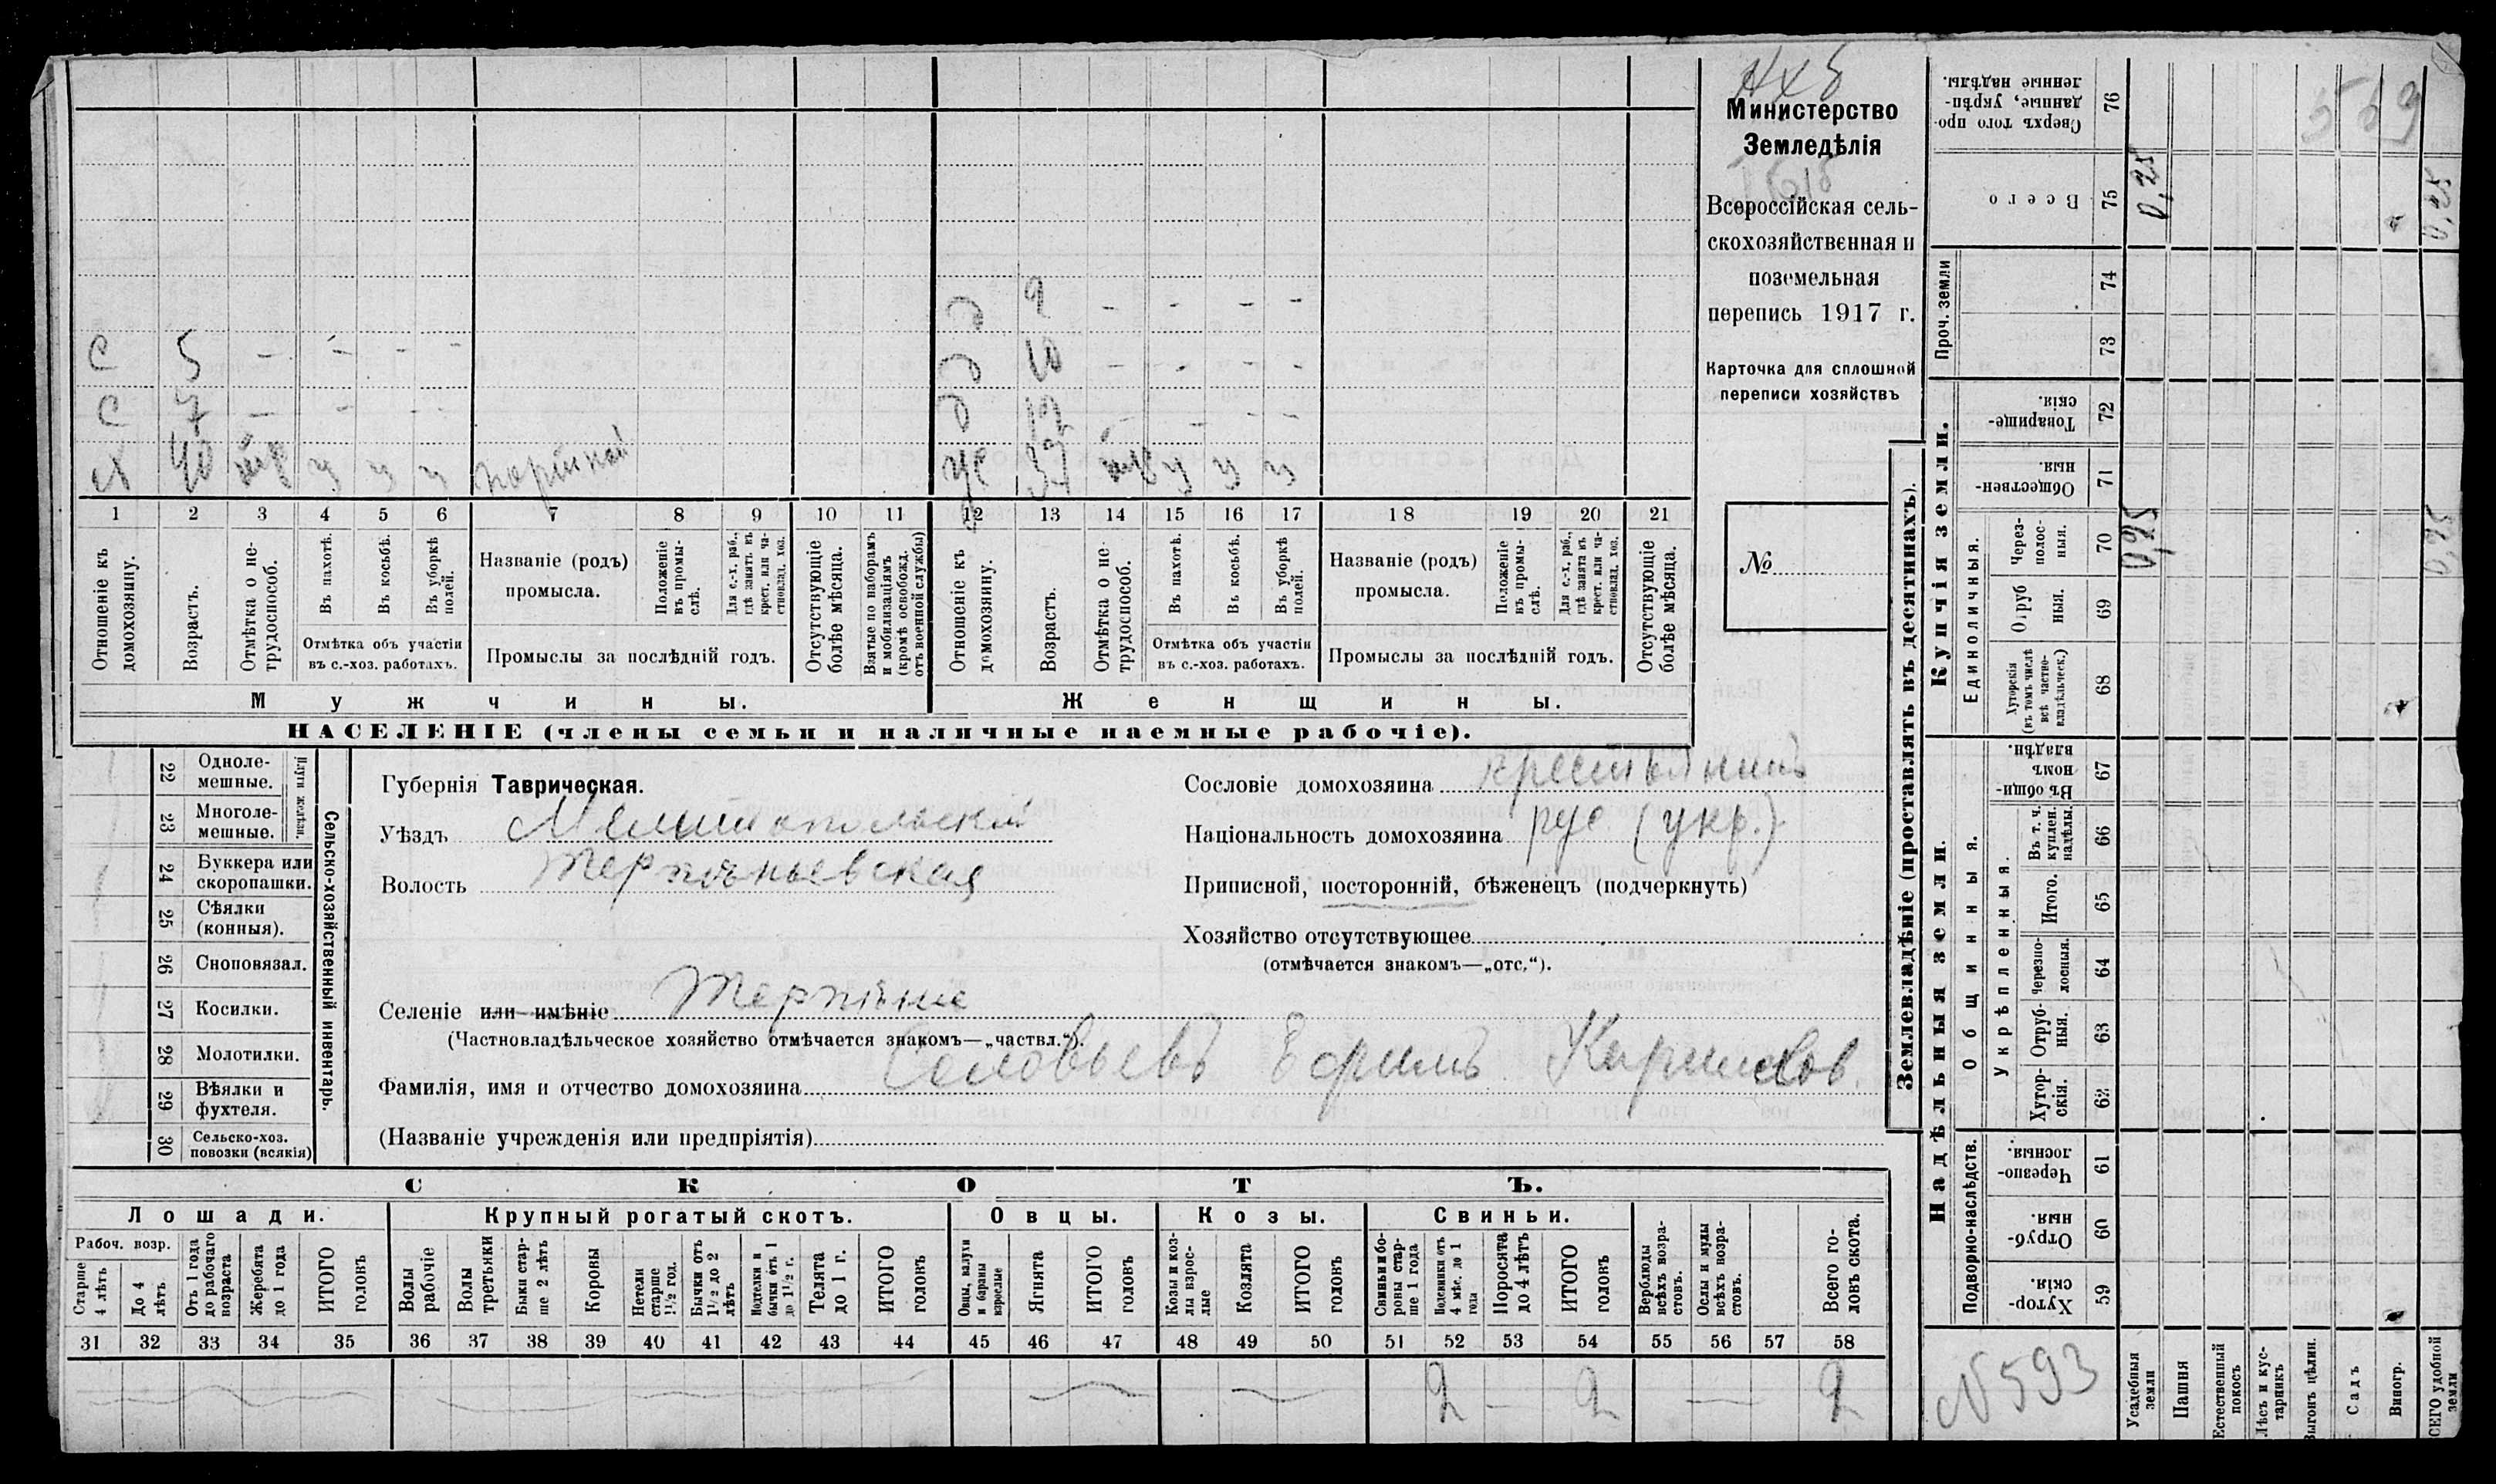 Министерство
Земледѣлія
Всероссійская сель-
скохозяйственная и
поземельная
перепись 1917 г.
Карточка для сплошной
переписи хозяйствъ
№
д 9 - - - -
с 5 - - - -
д 10 - - - -
с 7 - -
д 12 - - - -
х 40 тр у у у портной
ж 37 у у у
1 2 3 4 5 6 7 8 9 10 11 12 13 14 15 16 17 18 19 20 21
Отношеніе къ домохозяину.
Возрастъ.
Отмѣтка о не-трудоспособ.
Въ пахотѣ.
Въ косьбѣ.
Въ уборкѣ полей.
Отмѣтка объ участіи
въ с.-хоз. работахъ.
Названіе (родъ)
промысла.
Положеніе въ промы-слѣ.
Для с.-х. раб., гдѣ занятъ въ крест. или ча-стновлад. хоз.
Промыслы за послѣдній годъ.
Отсутствующіе болѣе мѣсяца.
Взятые по наборамъ и мобилизаціямъ (кромѣ освобожд. отъ военной службы)
Отношеніе къ домохозяину.
Возрастъ.
Отмѣтка о не-трудоспособ.
Въ пахотѣ.
Въ косьбѣ.
Въ уборкѣ полей.
Отмѣтка объ участіи
въ с.-хоз. работахъ.
Названіе (родъ)
промысла.
Положеніе въ промы-слѣ.
Для с.-х. раб., гдѣ занята въ крест. или ча-стновлад. хоз.
Промыслы за послѣдній годъ.
Отсутствующіе болѣе мѣсяца.
Мужчины.
Женщины.
НАСЕЛЕНІЕ (члены семьи и наличные наемные рабочіе).
22 Одноле-мешные.
23 Многоле-мешные.
Плуги желѣзн.
24 Буккера или скоропашки.
25 Сѣялки (конныя).
26 Сноповязал.
27 Косилки.
28 Молотилки.
29 Вѣялки и фухтеля.
30 Сельско-хоз. повозки (всякія)
Сельско-хозяйственный инвентарь.
Губернія Таврическая.
Уѣздъ Мелитопольскій
Волость Терпѣньевская
Сословіе домохозяина крестьянинъ
Національность домохозяина рус (укр.)
Приписной, посторонній, бѣженецъ (подчеркнуть)
Хозяйство отсутствующее
(отмѣчается знакомъ—„отс.“).
Селеніе или имѣніе Терпѣніе
(Частновладѣльческое хозяйство отмѣчается знакомъ—„частвл.“).
Фамилія, имя и отчество домохозяина Соловьевъ Ефимъ Кириловъ
(Названіе учрежденія или предпріятія)
СКОТЪ.
Лошади.
Крупный рогатый скотъ.
Овцы.
Козы.
Свиньи.
Рабоч. возр.
Старше 4 лѣтъ
До 4 лѣтъ
Отъ 1 года до рабочаго возраста
Жеребята до 1 года
ИТОГО головъ
Волы рабочіе
Волы третьяки
Быки стар-ше 2 лѣтъ
Коровы
Нетели старше 1½ год.
Бычки отъ 1½ до 2 лѣтъ
Подтелки и бычки отъ 1 до 1½ г.
Телята до 1 г.
ИТОГО головъ
Овцы, валухи и бараны взрослые
Ягнята
ИТОГО головъ
Козы и коз-лы взрос-лые
Козлята
ИТОГО головъ
Свиньи и бо-ровы стар-ше 1 года
Подсвинки отъ 4 мѣс. до 1 года
Поросята до 4 лѣтъ
ИТОГО головъ
Верблюды всѣхъ возра-стовъ.
Ослы и мулы всѣхъ возра-стовъ.
Всего го-ловъ скота.
31 32 33 34 35 36 37 38 39 40 41 42 43 44 45 46 47 48 49 50 51 52 53 54 55 56 57 58
2 - 2 - 2
Землевладѣніе (проставлять въ десятинахъ).
Сверхъ того про-данные, укрѣп-ленные надѣлы. 76
Всего 75
0,25 0,25
Проч. земли
74
73
Купчія земли.
Товарище-скія. 72
Обществен-ныя. 71
Единоличныя.
Через-полос-ныя. 70
0,25 0,25
Отруб ныя. 69
Хуторскія (въ томъ числѣ всѣ частно-владѣльческ.) 68
Надѣльныя земли.
Общинныя.
Въ общи-номъ владѣн. 67
Укрѣпленныя.
Въ т. ч. куплен. надѣлы. 66
Итого. 65
Черезпо-лосныя. 64
Отруб-ныя. 63
Хутор-скія. 62
Подворно-наслѣдств.
Черезпо-лосныя. 61
Отруб-ныя. 60
Хутор-скія. 59
N 593
Усадебныя земли
Пашня
Естественный покосъ
Лѣсъ и кус-тарникъ
Выгонъ цѣлин.
Садъ
Виногр.
ВСЕГО удобной земли